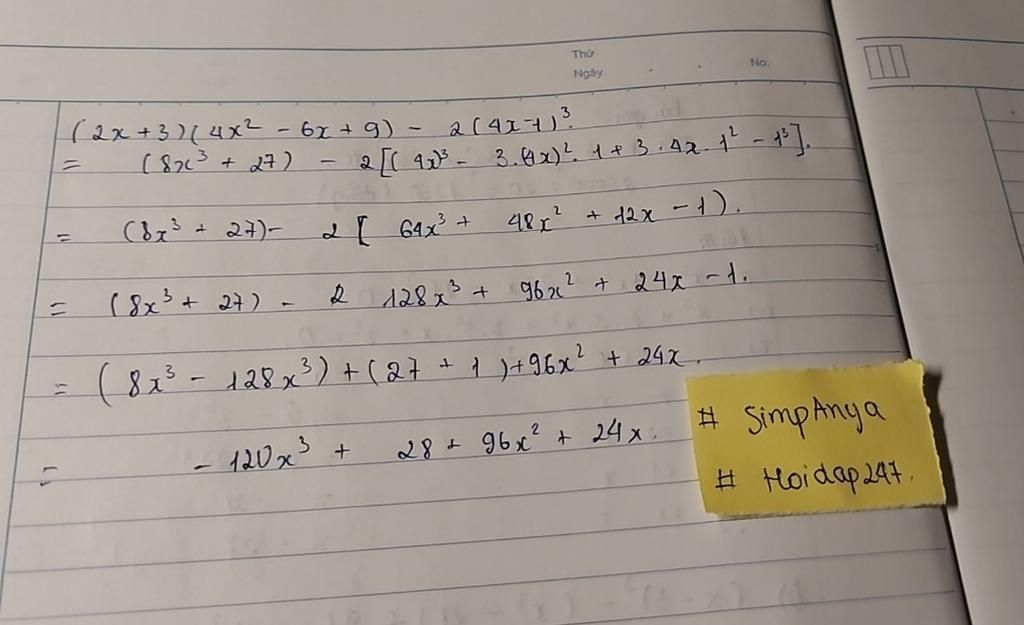 Thứ
Ngày
No.
(2x + 3)(4x² - 6x + 9) - 2(4x - 1)³.
= (8x³ + 27) - 2[(4x)³ - 3.(4x)². 1 + 3 . 4x . 1² - 1³].
= (8x³ + 27) - 2 [ 64x³ + 48x² + 12x - 1).
= (8x³ + 27) - 2 128x³ + 96x² + 24x - 1.
= (8x³ - 128x³) + (27 + 1) + 96x² + 24x.
= - 120x³ + 28 + 96x² + 24x.
# SimpAnya
# Hoidap247.